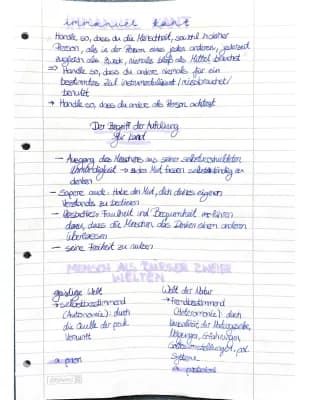 immanuel kant
Handle so, dass du die Menschheit, sowohl in deiner
Person, als in der Person eines jeden anderen, jederzeit
zugleich als Zweck, niemals bloß als Mittel brauchst
⇒ Handle so, dass du andere niemals für ein
bestimmtes Ziel instrumentalisiert / missbrauchst /
benutzt
→ Handle so, dass du andere als Person achtest
Der Begriff der Aufklärung
für Kant
– Ausgang des Menschen aus seiner selbstverschuldeten
Unmündigkeit → den Mut fassen selbstständig zu
denken
– Sapere aude: Habe den Mut, dich deines eigenen
Verstandes zu bedienen
– Faulheit und Bequemlichkeit verführen
dazu, dass die Menschen das Denken einem anderen
überlassen
– seine Freiheit zu nutzen
MENSCH ALS BÜRGER ZWEIER
WELTEN
geistige Welt
→ selbstbestimmend
(Autonomie): durch
die Quelle der prak.
Vernunft
a priori
Welt der Natur
→ fremdbestimmend
(Heteronomie): durch
Kausalität der Naturgesetze,
Neigungen, Erfahrungen,
pol.
Systeme
a posteriori